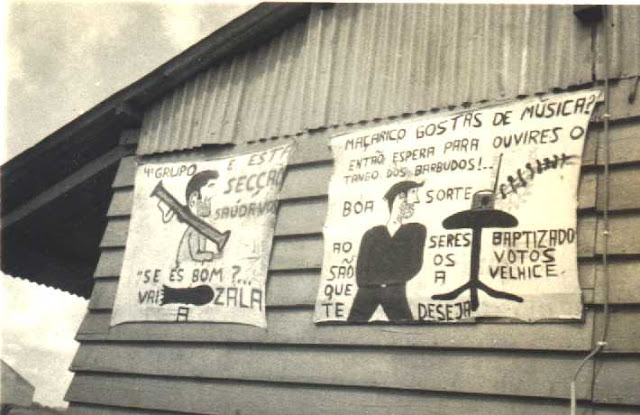 4º GRUPO E ESTA
SECÇÃO
SAÚDA-VOS
"SE ÉS BOM?...
VAI A ZALA
MAÇARICO GOSTAS DE MÚSICA?
ENTÃO ESPERA PARA OUVIRES O
TANGO DOS BARBUDOS!..
BOA SORTE
AO SERES BAPTIZADO
SÃO OS VOTOS
QUE A VELHICE.
TE DESEJA